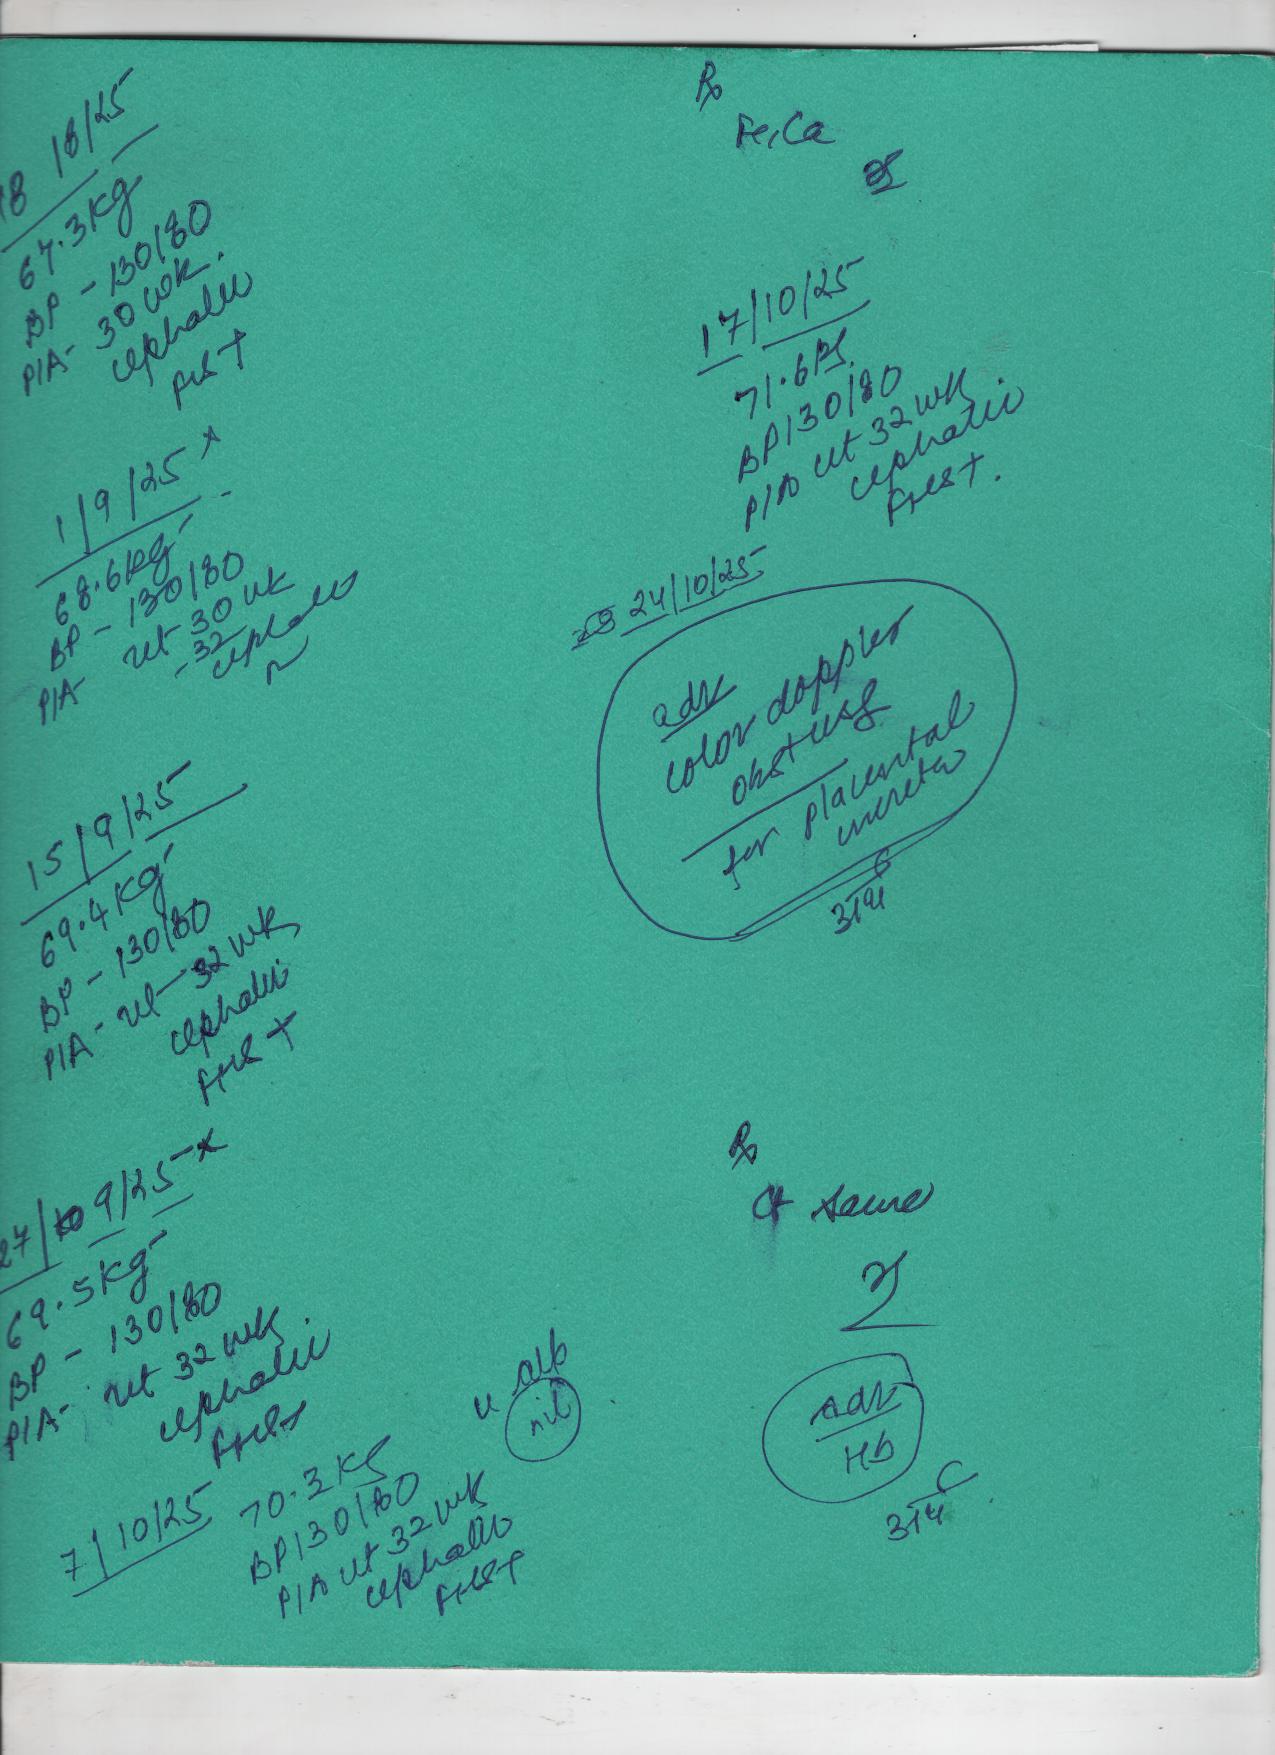 18/8/25
67.3kg
BP - 130/80
P/A - 30 wk.
cephalic
FHS +
1/9/25
68.6kg
BP - 130/80
P/A - ut 30 wk
- 32
cephalic
15/9/25
69.4kg
BP - 130/80
P/A - ut - 32 wk
cephalic
FHS +
27/9/25
69.5kg
BP - 130/80
P/A - ut 32 wk
cephalic
FHS +
7/10/25
70.3 kg
BP 130/80
P/A ut 32 wk
cephalic
FHS +
u alb
nil
Rx
Fe, Ca
17/10/25
71.6kg
BP 130/80
P/A ut 32 wk
cephalic
FHS +.
24/10/25
adv
color doppler
obst usg
for placental
Rx
Ct same
Adv
Hb